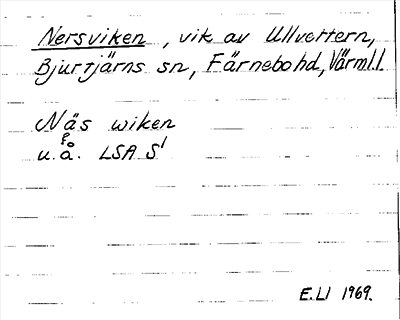 Nersviken, vik av Ullvettern,
Bjurtjärns sn, Färnebo hd, Värml.l.
Näs wiken
u.å. LSA S¹
E.LI 1969.